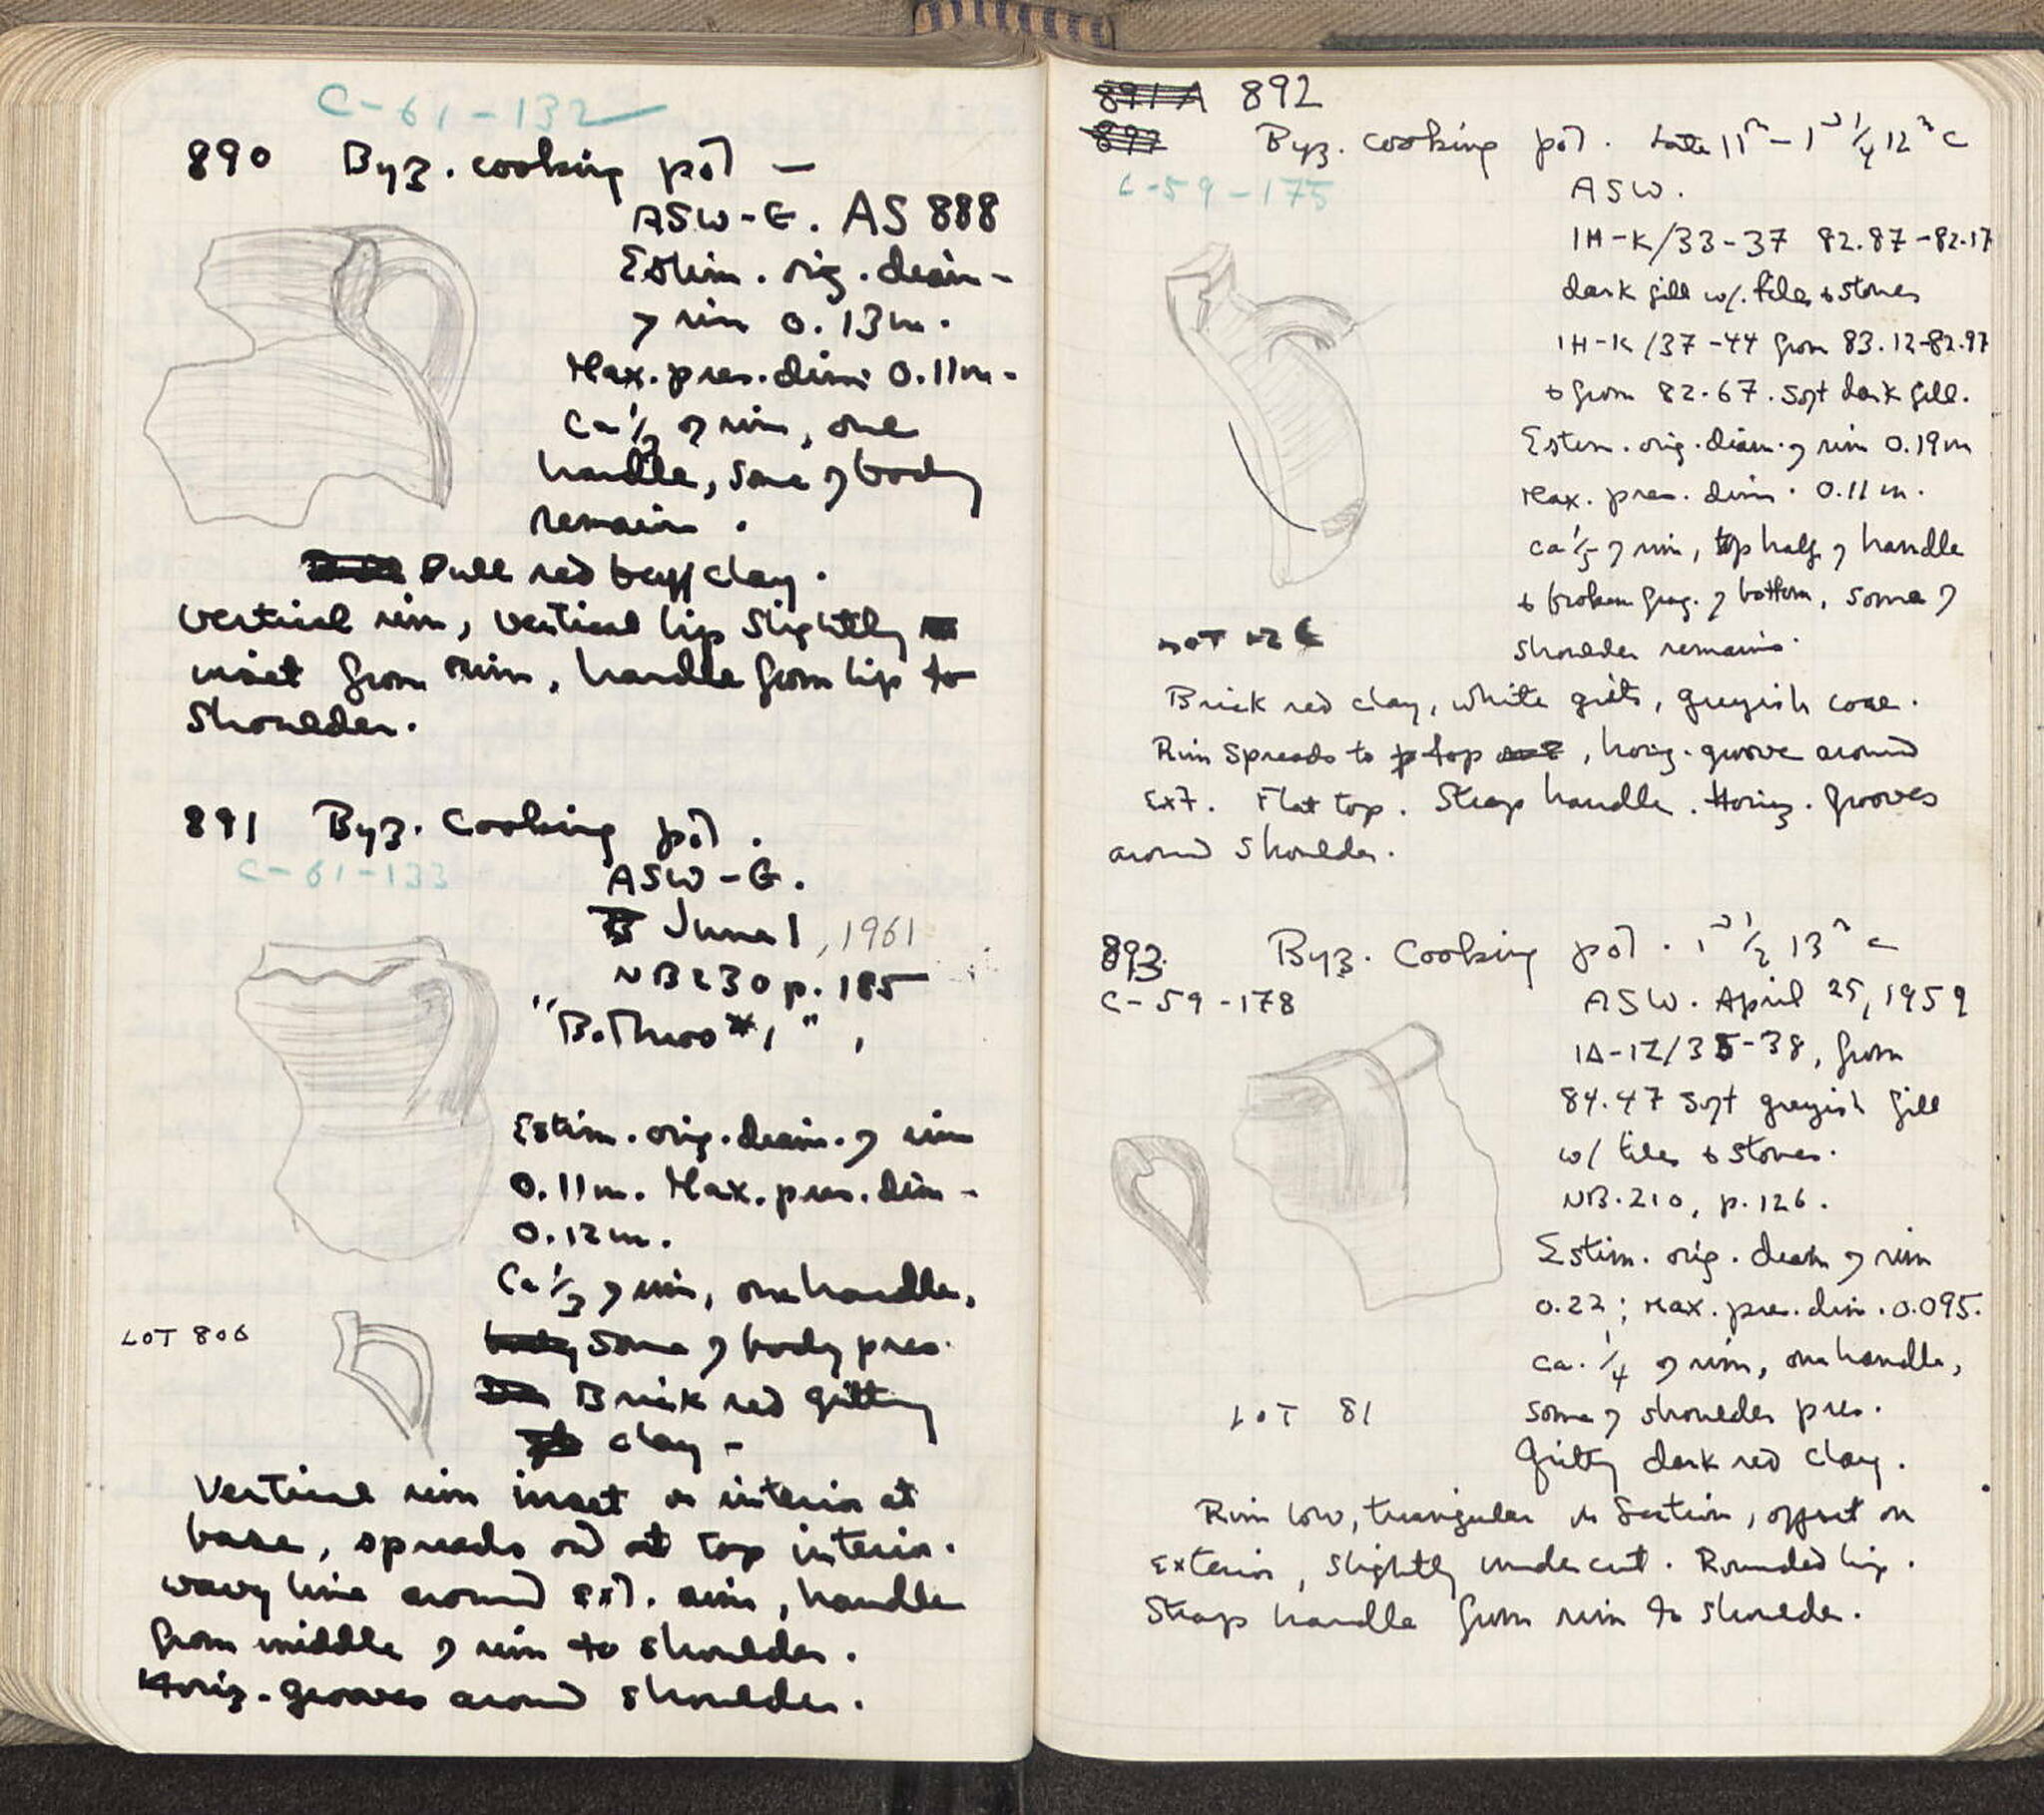 C-61-132
890 Byz. cooking pot —
ASW-G. AS 888
Estim. orig. diam.
of rim 0.13m.
Max. pres. dim. 0.11m.
Ca 1/3 of rim, one
handle, some of body
remain.
Dull red buff clay.
Vertical rim, vertical lip slightly
inset from rim, handle from lip to
shoulder.
891 Byz. Cooking pot.
C-61-133
ASW-G.
June 1, 1961
NB 230 p. 185
"Bothros #1",
Estim. orig. diam. of rim
0.11m. Max. pres. dim.
0.12m.
Ca 1/3 of rim, one handle,
some of body pres.
LOT 806
Brick red gritty
clay.
Vertical rim inset on interior at
base, spreads out at top interior.
wavy line around ext. rim, handle
from middle of rim to shoulder.
Horiz. grooves around shoulder.
891 A 892
Byz. cooking pot. Late 11th - 1st 1/4 12th c
C-59-175
ASW.
1H-K/33-37 82.87-82.17
dark fill w/. tiles & stones
1H-K/37-44 from 83.12-82.97
& from 82.67. Soft dark fill.
Estim. orig. diam. of rim 0.19m
Max. pres. dim. 0.11m.
ca 1/5 of rim, top half of handle
& broken frag. of bottom, some of
shoulder remains.
LOT
Brick red clay, white grits, greyish core.
Rim spreads to top, horiz. groove around
Ext. Flat top. Strap handle. Horiz. grooves
around shoulder.
893 Byz. Cooking pot. 1st 1/2 13th c
C-59-178
ASW. April 25, 1959
1Δ-12/35-38, from
84.47 Soft greyish fill
w/ tiles & stones.
NB.210, p.126.
Estim. orig. diam of rim
0.22; Max. pres. dim. 0.095.
ca. 1/4 of rim, one handle,
some of shoulder pres.
LOT 81
Gritty dark red clay.
Rim low, triangular in Section, offset on
exterior, slightly undercut. Rounded lip.
Strap handle from rim to shoulder.